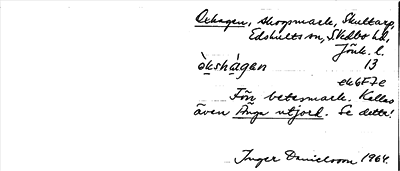 Oxhagen, skogsmark, Skultarp,
Edshults sn, S Vedbo hd,
Jönk. l.
òkshàgan 13
ek6F7e
Förr betesmark. Kallas
även Ånga utjord. Se detta!
Inger Danielsson 1964.